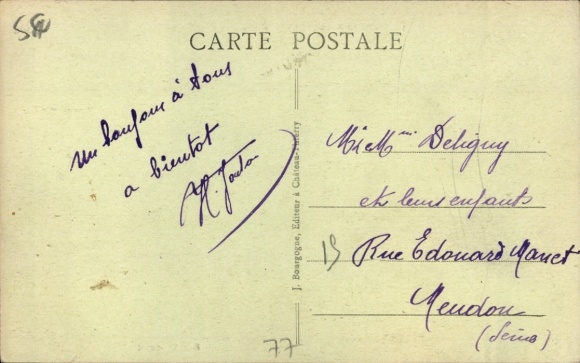 54
CARTE POSTALE
Un bonjour à tous
a bientot
H.
J. Bourgogne, Éditeur à Château-Thierry
M et Mme Deligny
et leurs enfants
15 Rue Edouard Manet
Meudon
(Seine)
77